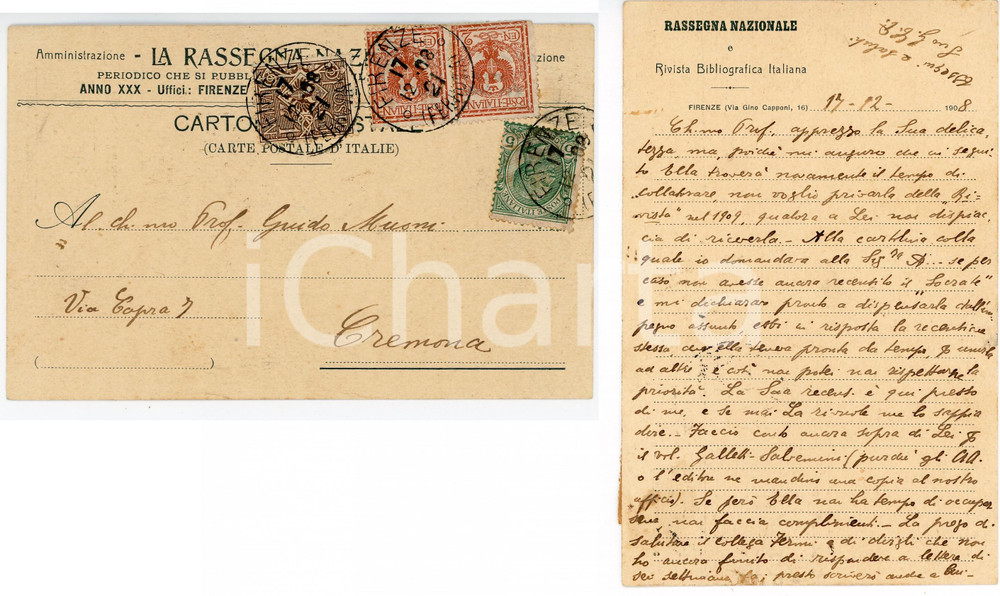 Amministrazione - LA RASSEGNA NAZ
zione
PERIODICO CHE SI PUBBL
ANNO XXX - Uffici: FIRENZE
CARTO STALE
(CARTE POSTALE D'ITALIE)
FIRENZE
17
12 08
21
FIRENZE
17
12 08
21
FIRENZE
17
POSTE ITALIANE
Al ch.mo Prof. Guido Muoni
"
Via Capra 7
Cremona
iCharta
RASSEGNA NAZIONALE
e
Rivista Bibliografica Italiana
FIRENZE (Via Gino Capponi, 16) 17-12- 1908
Ossequi e saluti
Suo
Ch.mo Prof. apprezzo la Sua delica
tezza ma, poiché mi auguro che in segui
to Ella troverà novamente il tempo di
collaborare, non voglio privarla della "Ri
vista" nel 1909, qualora a Lei non dispiac
cia di riceverla. - Alla cartolina colla
quale io domandava alla Sig.na A... se per
caso non avesse ancora recensito il "Socrate"
e mi dichiarava pronto a dispensarla dall'im
pegno assunto, ebbi in risposta la recensione
stessa che ella teneva pronta da tempo
ad altre e così non potei non rispettarne la
priorità. La Sua recens. è qui presso
di me, e se mai La rivuole me lo sappia
dire. - Faccio conto ancora sopra di Lei
il vol. Galletti-Salvemini (purché gli AA.
o l'editore ne mandino una copia al nostro
ufficio). Se però Ella non ha tempo di occupar
sene, non faccia complimenti. - La prego di
salutare il collega Fermi e di dirgli che non
ho ancora finito di rispondere a lettere di
sei settimane fa; presto scriverò anche a lui -